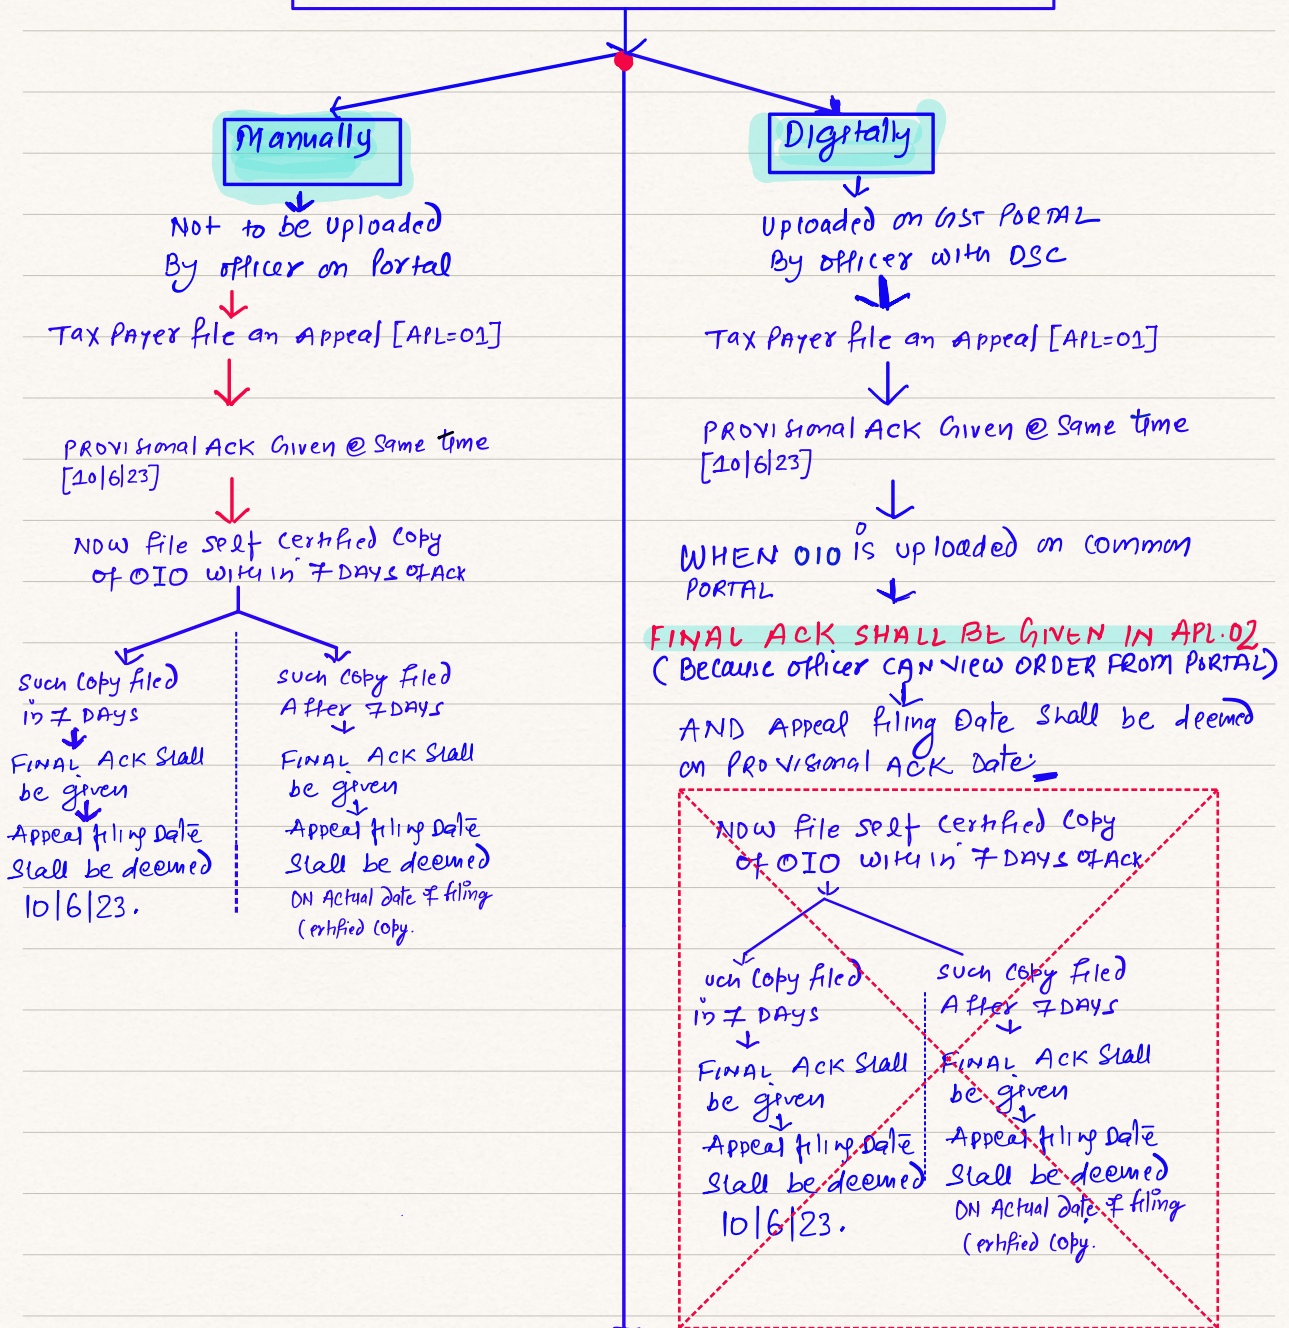 Manually
Not to be Uploaded
By officer on Portal
Tax Payer file an Appeal [APL=01]
PROVISIONAL ACK Given @ Same time
[10/6/23]
NOW file self Certified Copy
Of OIO with in 7 DAYS Of ACK
Such Copy filed
in 7 DAYS
FINAL ACK Shall
be given
Appeal filing Date
Shall be deemed
10/6/23.
Such Copy filed
After 7 DAYS
FINAL ACK Shall
be given
Appeal filing Date
Shall be deemed
ON Actual date of filing
Certified Copy.
Digitally
Uploaded on GST PORTAL
By officer with DSC
Tax Payer file an Appeal [APL=01]
PROVISIONAL ACK Given @ Same time
[10/6/23]
WHEN OIO is uploaded on Common
PORTAL
FINAL ACK SHALL BE GIVEN IN APL.02
(Because officer CAN VIEW ORDER FROM PORTAL)
AND Appeal filing Date Shall be deemed
on PROVISIONAL ACK Date.
NOW file self Certified Copy
Of OIO with in 7 DAYS Of ACK
uch Copy filed
in 7 DAYS
FINAL ACK Shall
be given
Appeal filing Date
Shall be deemed
10/6/23.
Such Copy filed
After 7 DAYS
FINAL ACK Shall
be given
Appeal filing Date
Shall be deemed
ON Actual date of filing
Certified Copy.